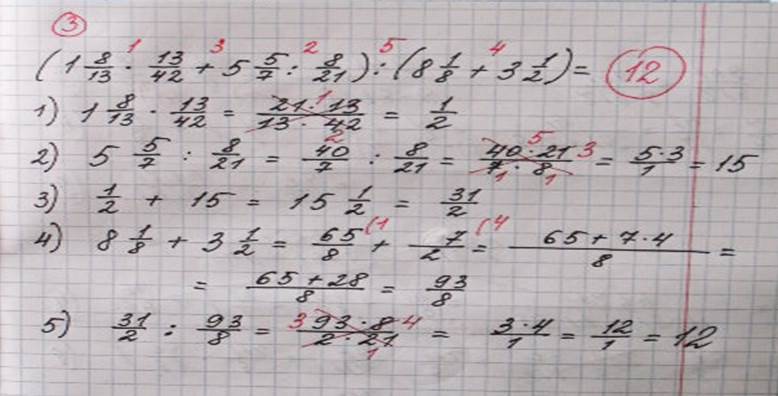 3
(1 8/13 · 13/42 + 5 5/7 : 8/21) : (8 1/8 + 3 1/2) = 12
1) 1 8/13 · 13/42 = 21·13/13·42 = 1/2
2) 5 5/7 : 8/21 = 40/7 : 8/21 = 40·21/7·8 = 5·3/1 = 15
3) 1/2 + 15 = 15 1/2 = 31/2
4) 8 1/8 + 3 1/2 = 65/8 + 7/2 = 65+7·4/8 =
= 65+28/8 = 93/8
5) 31/2 : 93/8 = 93·8/2·21 = 3·4/1 = 12/1 = 12